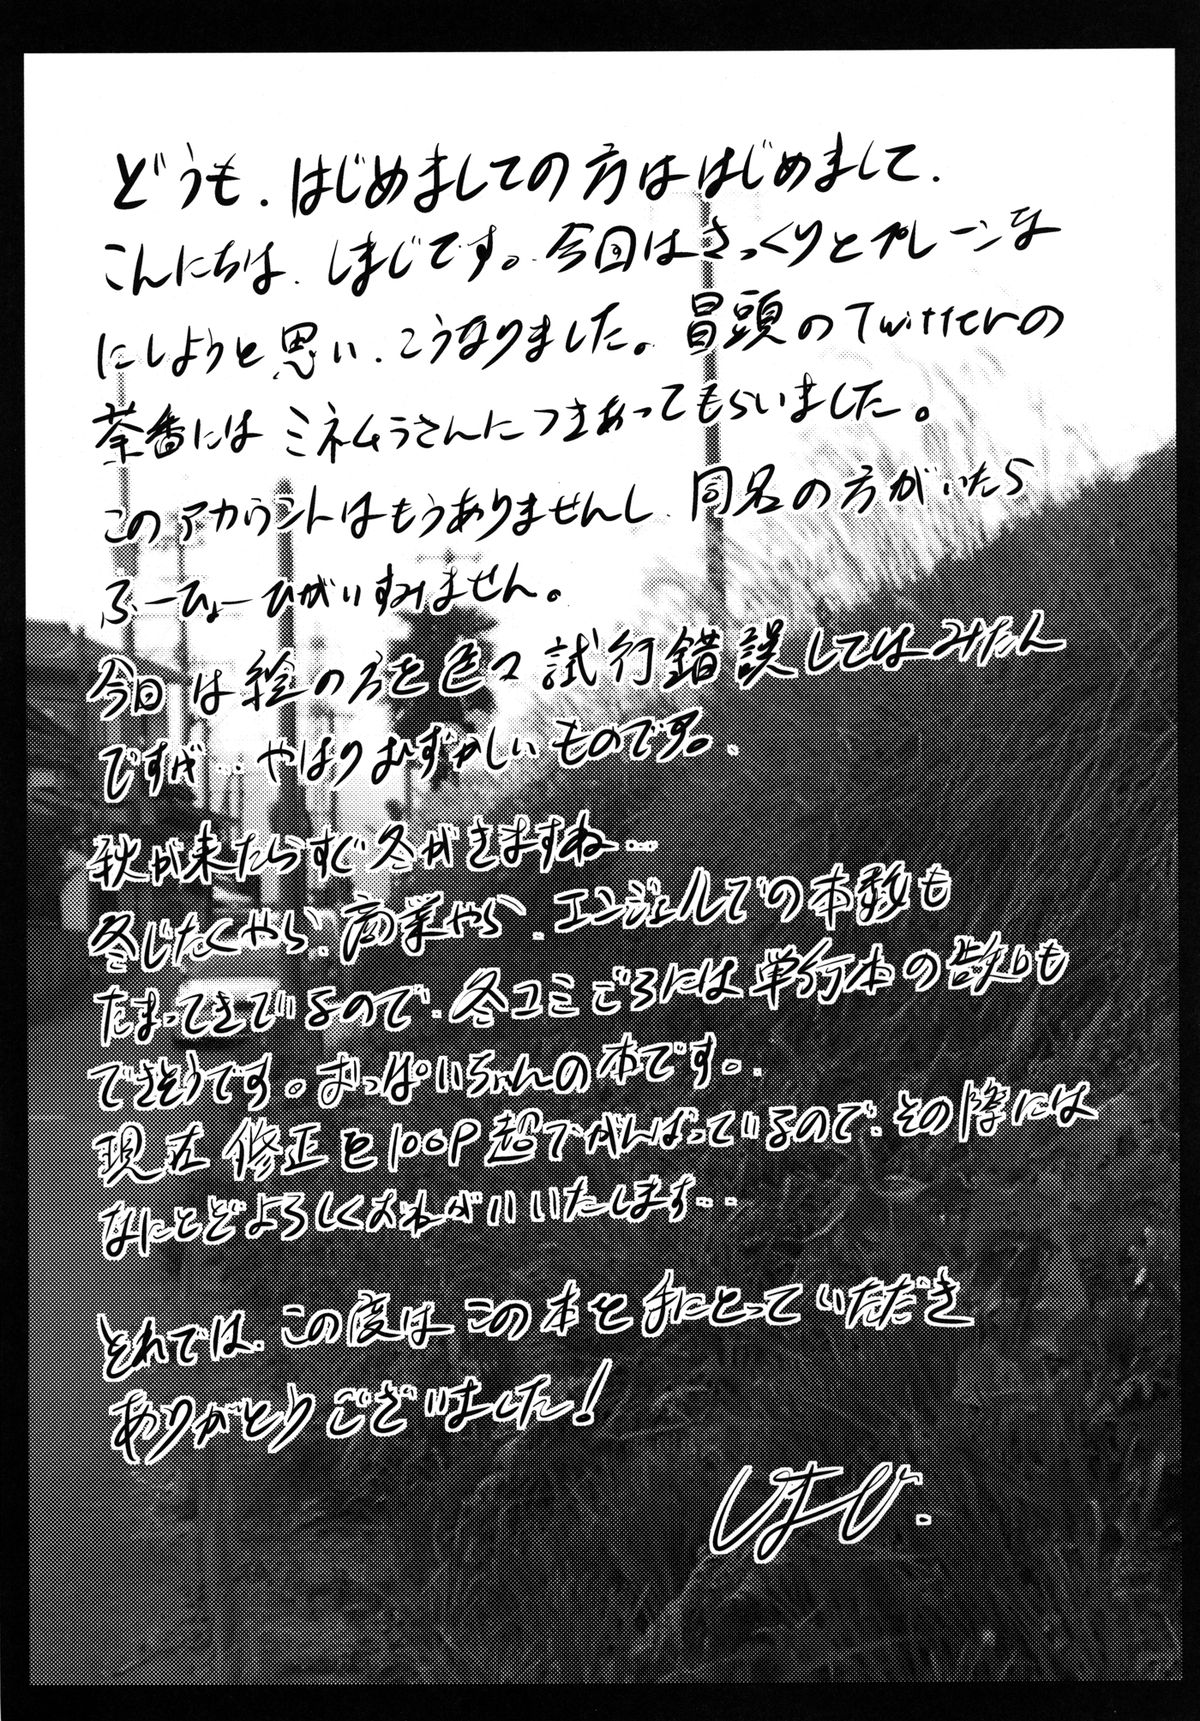 どうも、はじめましての方ははじめまして、
こんにちは、しまじです。今回はさっくりとプレーンな
にしようと思い、こうなりました。冒頭のTwitterの
茶番にはミネムラさんにつきあってもらいました。
このアカウントはもうありませんし、同名の方がいたら
ふーひょーひがいすみません。
今回は絵の方を色々試行錯誤してはみたん
ですが…やはりむずかしいものです。
秋が来たらすぐ冬がきますね…
冬じたくやら、商業やら、エンジェルでの本数も
たまってきているので、冬コミごろには単行本の告知も
できそうです。おっぱいちゃんの本です。
現在修正を100P超でがんばっているので、その際には
なにとぞよろしくおねがいいたします…
それでは、この度はこの本を手にとっていただき
ありがとうございました！
しまじ.